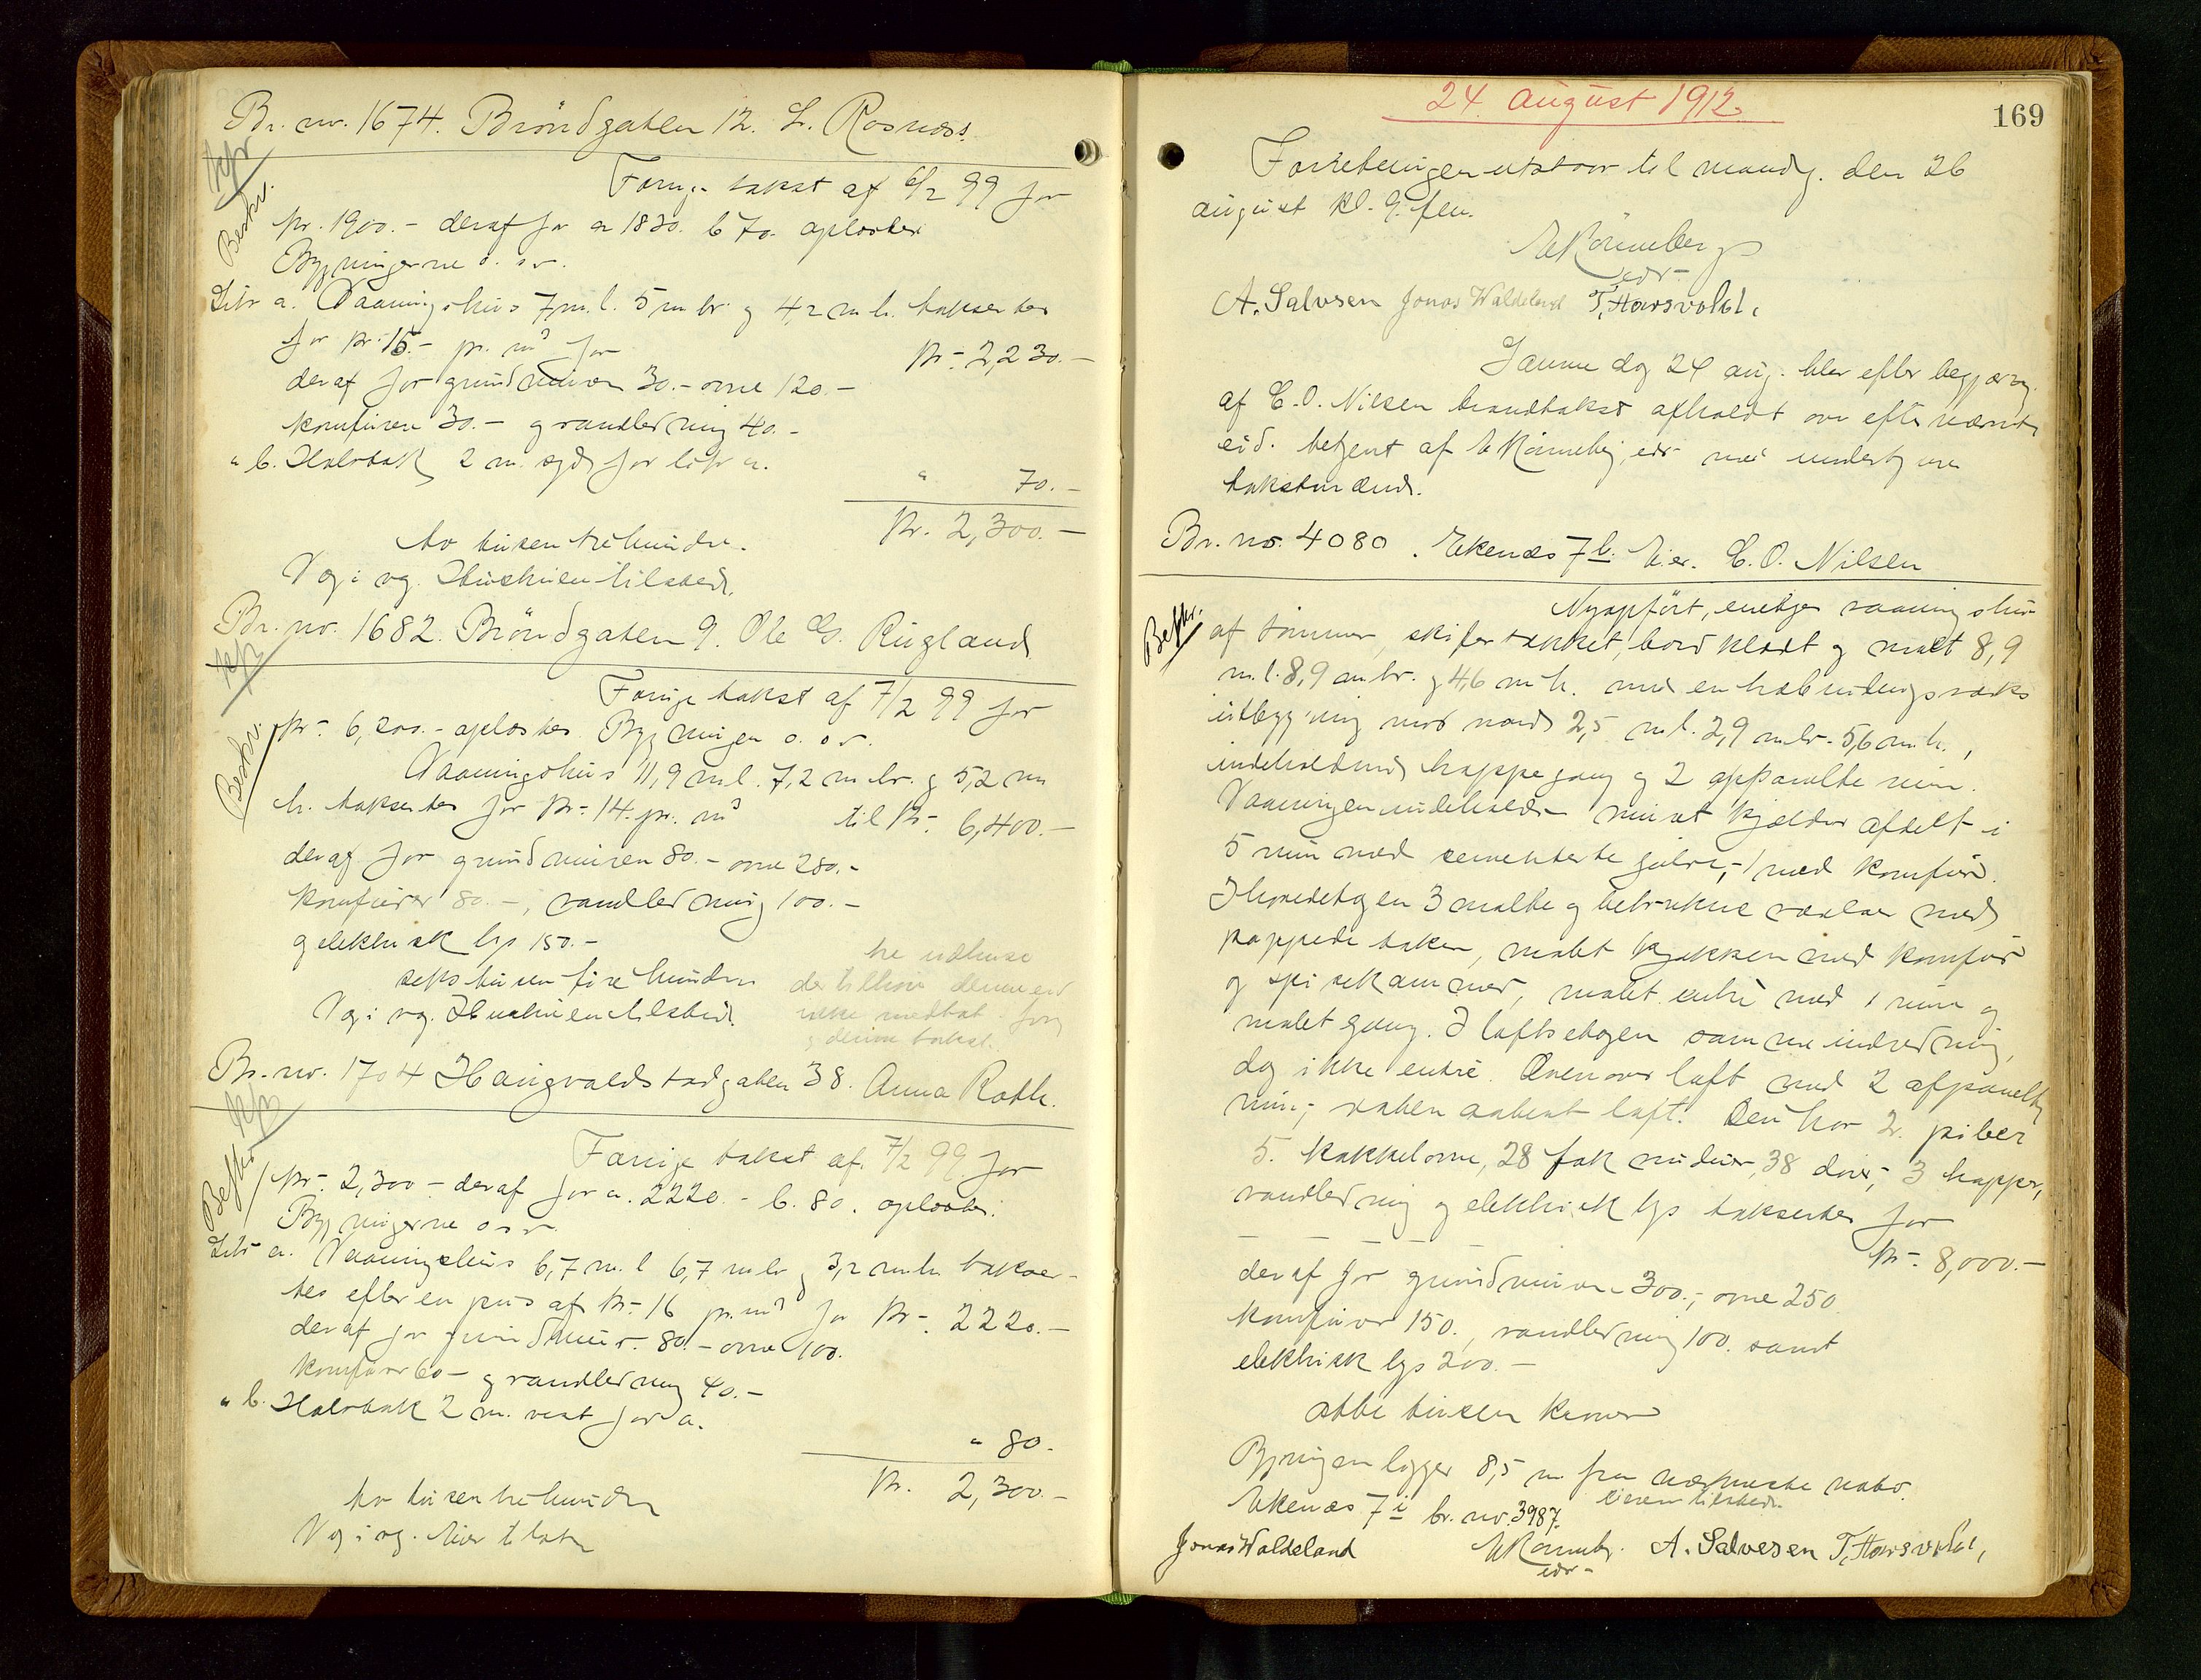 Br. nr. 1674. Bröndgaten 12. L. Rosnæss.
Kfr
Beskr.
Forrige takst af 6/2 99 for
kr. 1900.- deraf for a 1830. b 70. oplæstes
Bygningerne o. s v.
Litr a. Vaaningshus 7 m. l. 5 m br. og 4,2 m h. takseres
for kr. 15.- pr. m³ for kr. 2,230.-
deraf for grundmuren 30.- ovne 120.-
komfuren 30.- og vandledning 40.-
" b. Halvtak 2 m. syd for litr a. " 70.-
Kr. 2,300.-
to tusen trehundre.
V og i og. Hustruen tilstede.
Br. nr. 1682. Bröndgaten 9. Ole Rugland
Kfr
Beskr.
Forrige takst af 7/2 99 for
kr. 6,200.- oplæstes. Bygningen o. s v.
Vaaningshus 11,9 m l. 7,2 m br. og 5,2 m
h. takseres for kr. 14.- pr. m³ til kr. 6,400.-
deraf for grundmuren 80.- ovne 280.-
komfurer 80.-, vandledning 100.-
og elektrisk lys 150.-
seks tusen fire hundre
V og i og. Hustruen tilstede.
tre udhuse
der tilhører denne eid
ikke medtat i forrige
og denne takst.
Br. nr. 1704 Haugvaldstadgaten 38. Anna Roth.
Kfr
Beskr.
Forrige takst af 7/2 99 for
kr. 2,300 - deraf for a. 2220.- b. 80. oplæstes.
Bygningerne o s v.
Litr a. Vaaningshus 6,7 m. l 6,7 m br og 3,2 m h takse-
res efter en pris af kr. 16 pr. m³ for kr. 2220.-
deraf for grundmur. 80.- ovne 100.
komfurer 60- og vandledning 40.-
" b. Halvtak 2 m. vest for a. " 80.
Kr. 2,300.-
to tusen tre hundre
V og i og. Eier tilstede
24 august 1912.
169
Forretningen utstaar til mandag. den 26
august kl. 9 fm.
E Rönneberg
edr-
A. Salvesen Jonas Waldeland T. Haarsvold.
Samme dag 24 aug. blev efter begjæring
af C. O. Nilsen brandtakst afholdt over efternævnte
eid. betjent af E Rönneberg, edr med undertegnede
takstmænd.
Br. no. 4080. Ekenæs 7 b. Eier. C. O. Nilsen
Beskr.
Nyopfört, enetages vaaningshus
af tömmer, skifertækket, bordklædt og malt 8,9
m. l. 8,9 m br. og 4,6 m h. med en halv
utbygning mot nord 2,5 m l. 2,9 m br. 5,6 m h.,
indeholdende trappegang og 2 oppanelte rum.
Vaaningen indeholder muret kjælder afdelt i
5 rum med cementerte gulve, 1 med komfur.
I hovedetagen 3 malte og betrukne værelser med
pappede taker, malet kjøkken med komfur
og spisekammer, malet entré med 1 rum og
malet gang. I loftsetagen samme indredning,
dog ikke entré. Ovenover loft med 2 afpanelte
rum, saaken aabent loft. Den har 2 piber
5 kakkelovne, 28 fak vinduer, 38 döre, 3 trapper,
vandledning og elektrisk lys takseres for
kr. 8,000.-
deraf for grundmuren 300.-, ovne 250.
komfurer 150., vandledning 100. samt
elektrisk lys 200.-
otte tusen kroner
Bygningen ligger 8,5 m. fra nærmeste nabo.
Ekenæs 7 i br. nr. 3987. Eieren tilstede.
Jonas Waldeland E Rönneberg A. Salvesen T. Haarsvold,
edr-